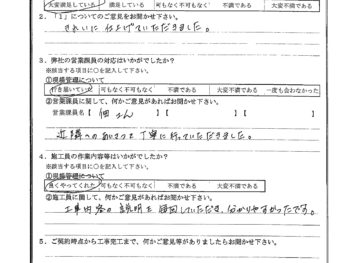 大変満足している 満足している 可もなく不可もなく 不満である 大変不満である
2.「1」についてのご意見をお聞かせ下さい。
きれいに仕上げていただきました。
3.弊社の営業課員の対応はいかがでしたか?
※該当する項目に○を記入して下さい。
①現場管理について
行き届いていた 可もなく不可もなく 不満である 大変不満である 一度も会わなかった
②営業課員に関して、何かご意見があればお聞かせ下さい。
営業課員名【 佃さん 】【 】【 】
近隣へのあいさつも丁寧に行っていただきました。
4.施工員の作業内容等はいかがでしたか?
※該当する項目に○を記入して下さい。
①現場管理について
良くやってくれた 可もなく不可もなく 不満である 大変不満である
②施工員に関して、何かご意見があればお聞かせ下さい。
工事内容の説明も していただき、分かりやすかったです。
5.ご契約時点から工事完工まで、何かご意見等がありましたらお聞かせ下さい。